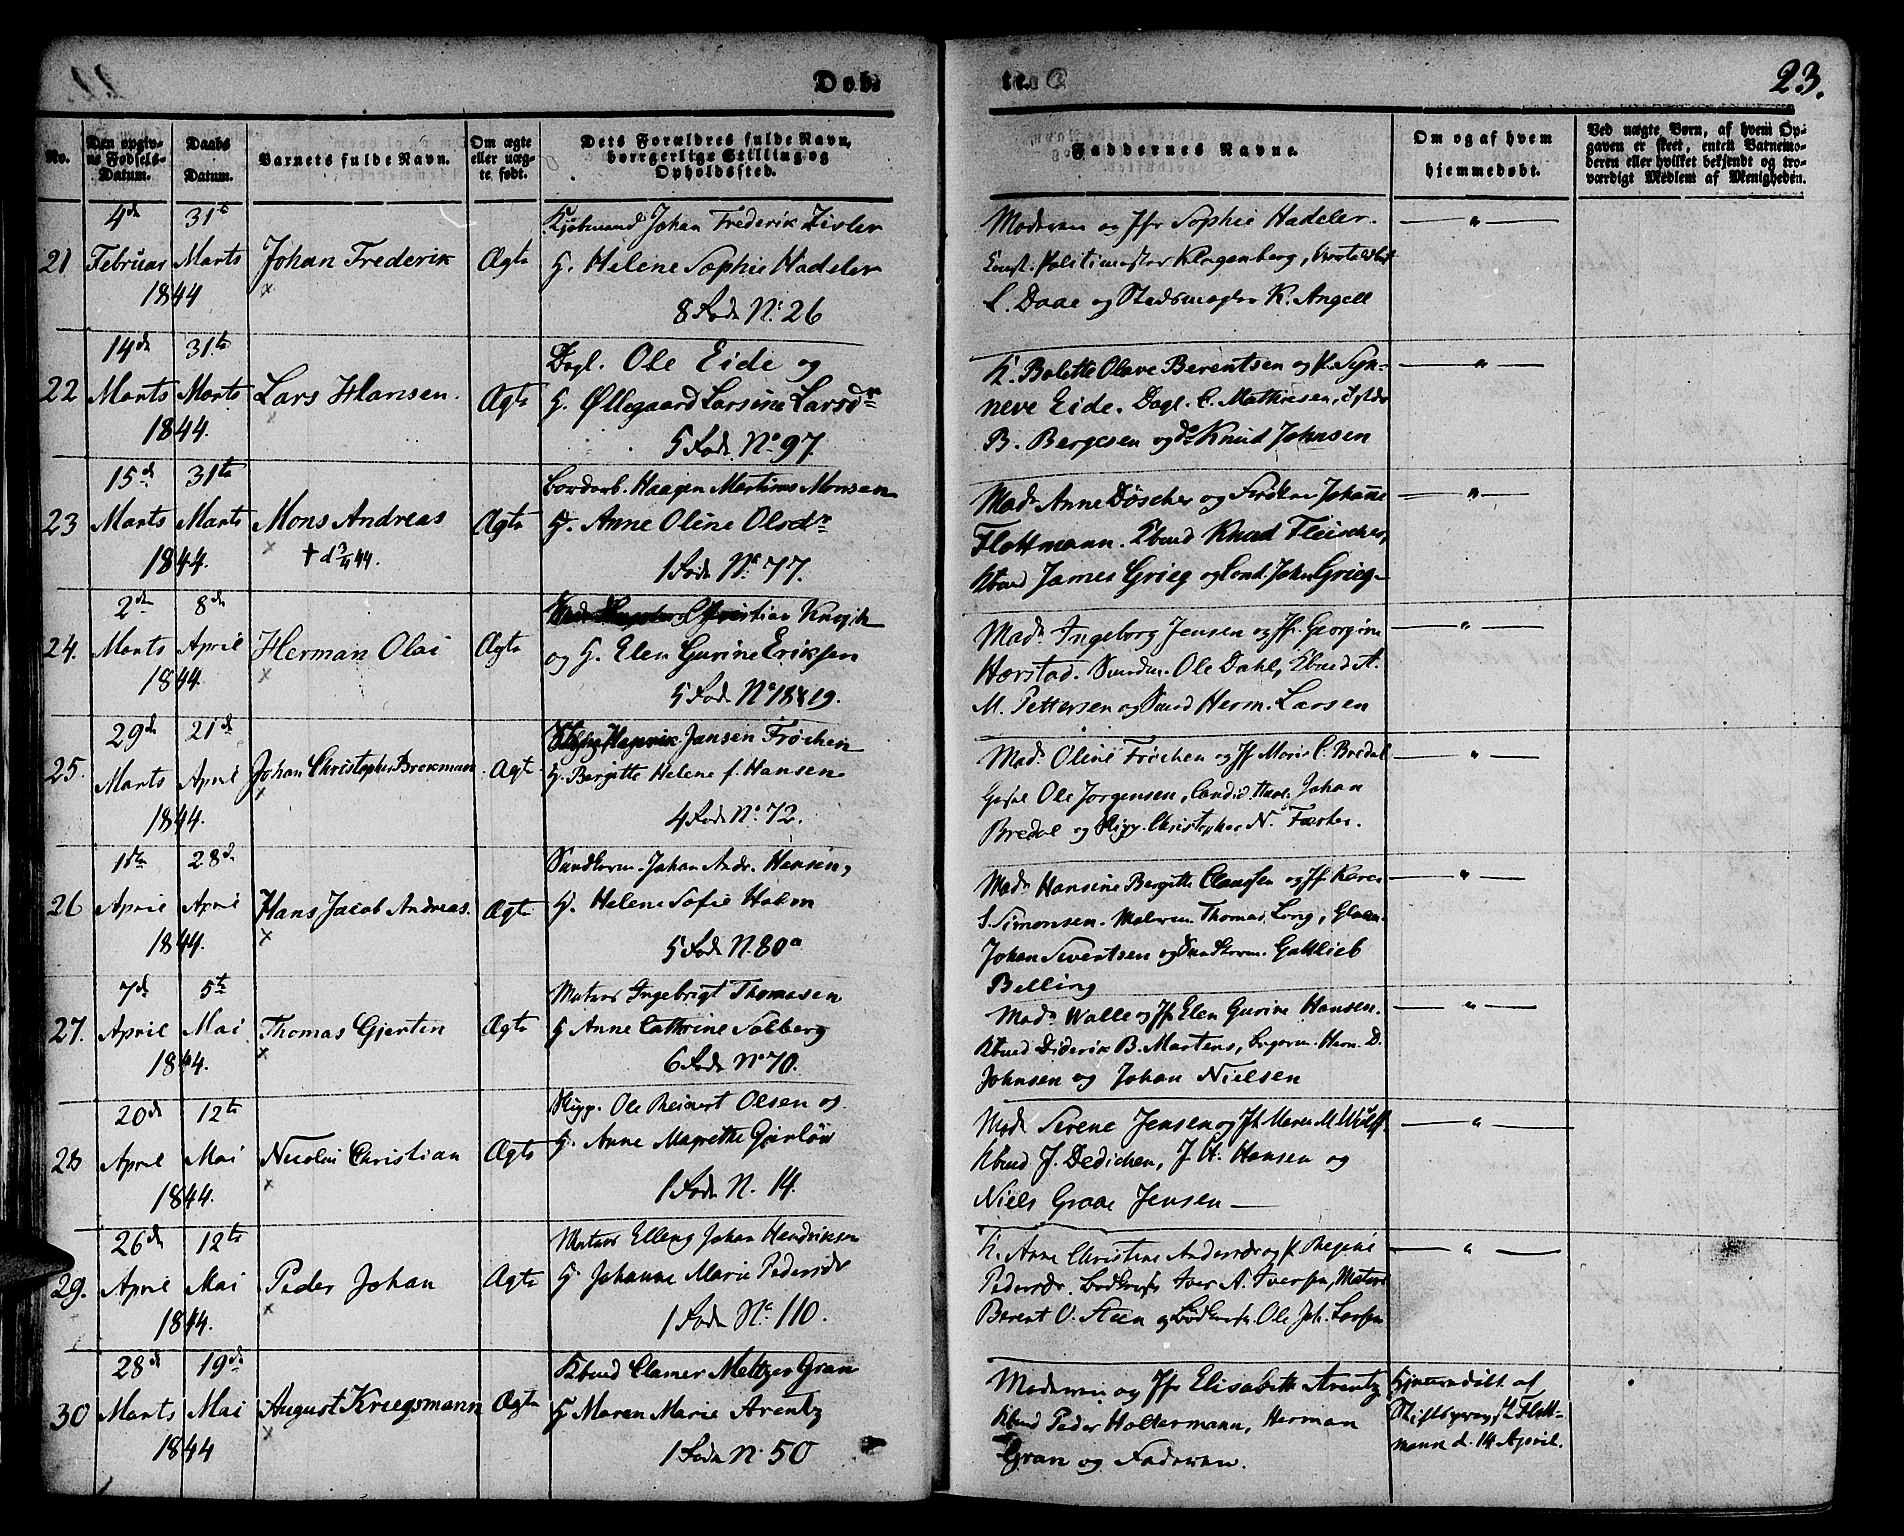 Døb= te. 23.
No.
Den opgiv-
ne Fødsels-
Datum.
Daabs
Datum.
Barnets fulde Navn.
Om ægte
eller uæg-
te født.
Dets Forældres fulde Navn,
borgerlige Stilling og
Opholdssted.
Faddernes Navne.
Om og af hvem
hjemmedøbt.
Ved uægte Børn, af hvem Op-
gaven er skeet, enten Barnemo-
deren eller hvilket bekjendt og tro-
værdigt Medlem af Menigheden.
21
4de
Februar
1844
31te
Marts
Johan Frederik
Ægte
Kjøbmand Johan Frederik Zisler
H. Helene Sophie Hadeler
8 Rode No. 26
Moderen og Jfr Sophie Hadeler.
Const. Politimester Klagenberg,
L. Daae og Stadsmægler K. Angell
"
22
14de
Marts
1844.
31te
Marts
Lars Hansen.
Ægte
Dagl. Ole Eide og
H. Øllegaard Larsine Larsdr
5 Rode No. 97.
K. Bolette Olave Berentsen og P. Syn-
neve Eide. Dagl. C. Mathiesen,
B. Bergesen og do Knud Johnsen
"
23
15de
Marts
1844.
31te
Marts
Mons Andreas
† d 3/4 44.
Ægte
Haagen Martinus Monsen
H. Anne Oline Olsdr
1 Rode No. 77.
Mad. Anne Døscher og Frøken Johanne
Flottmann. Kbmd Knud Fleischer,
Kbmd James Grieg og Cand. John Grieg
"
24.
2den
Marts
1844.
8de
April
Herman Olai
Ægte
Christian
og H. Elen Gurine Eriksen
5 Rode No 18 & 19.
Mad. Ingeborg Jensen og Jfr. Georgine
Harstad. Ole Dahl, Kbmd A.
M. Pettersen og Herm. Larsen
"
25.
29de
Marts
1844.
21de
April
Johan Christopher Brekman
Ægte
Jansen Frøchen
H. Bergitte Helene f. Hansen
4 Rode No. 72.
Mad. Oline Frøchen og Jf Marie C. Bredal
Ole Jørgensen, Candid. Johan
Bredal og Skipp. Christopher N. Færher.
"
26
1ste
April
1844.
28de
April
Hans Jacob Andreas.
Ægte
Johan Andr. Hansen,
H. Helene Sofie Holm
5 Rode N. 80a
Mad. Hansine Bergitte Claussen og Jf. Karen
S. Simonsen. Maleren Thomas Long,
Johan Sivertsen og Gottlieb
Belling
"
27.
7de
April
1844.
5te
Mai
Thomas Gjerten
Ægte
Matros Ingebrigt Thomasen
H Anne Cathrine Solberg
6 Rode No 70.
Mad. Walle og Jf Elen Gurine Hansen.
Kbmd Diderik B. Martens, Herm. D.
Johnsen og Johan Nielsen
"
28
20de
April
1844.
12te
Mai
Nicolai Christian
Ægte
Skipp. Ole Reinert Olsen og
H. Anne Magrethe Gjerløv
1 Rode N. 14.
Mad. Serene Jensen og Jf. Maren M. Wulff.
Kbmd J. Dedichen, J. H. Hansen og
Niels Graae Jensen
"
29.
26de
April
1844.
12te
Mai
Peder Johan
Ægte
Matros Elling Johan Hendriksen
H. Johanne Marie Pedersdr
1 Rode No. 110.
K. Anne Christine Andersdr og P. Regine
Pedersdr. Iver A. Iversen, Matros
Berent O. Steen og Ole Joh. Larsen
"
30
28de
Marts
1844
19de
Mai
August Kriegsmann
Ægte
Kbmd Clamer Meltzer Gran
H. Maren Marie Arentz
1 Rode N. 50
Moderen og Jfr Elisabeth Arentz
Kbmd Peder Holtermann, Herman
Gran og Faderen.
Hjemmedøbt af
Stiftsprovst Flott-
mann d. 14 April.